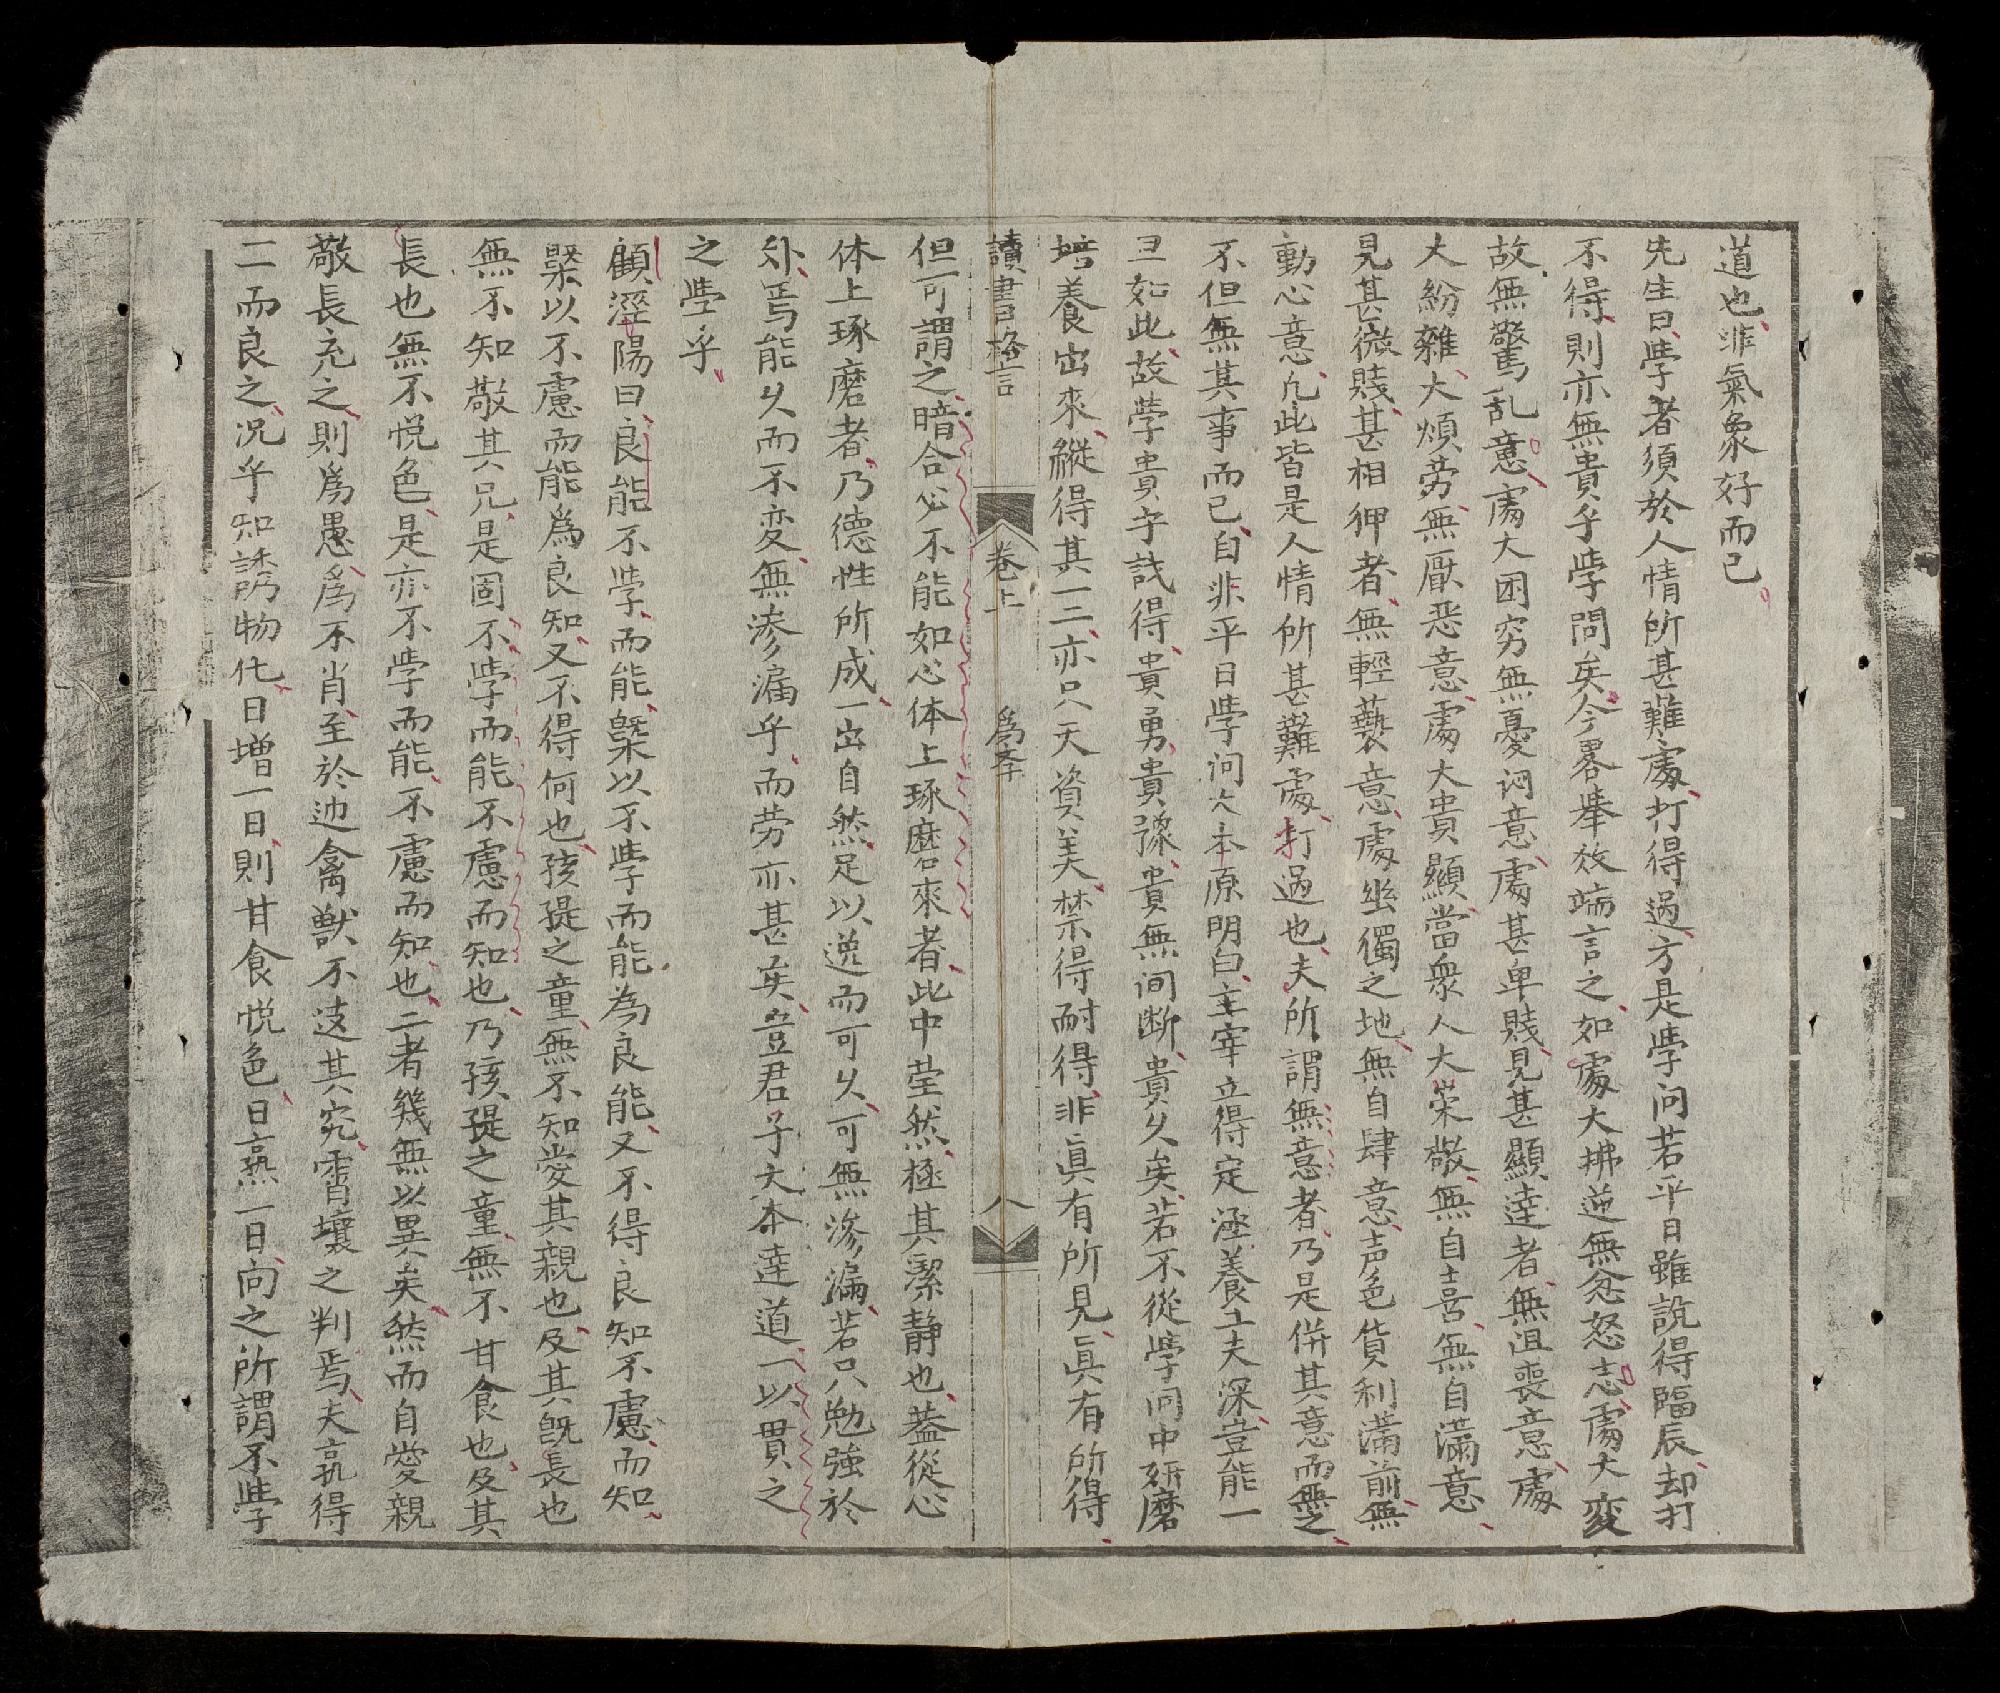 道也非氣象好而已
先生曰学者須於人情所甚難處打得過方是学问若平日雖說得臨辰却打
不得則亦無貴乎学問矣今畧舉效端言之如處大拂逆無忿怒志處大変
故無驚乱意處大困穷無憂词意處甚卑賤見甚顯達者無沮喪意處
大紛雜大煩劳無厭恶意處大貴顯當衆人大荣敬無自喜無自滿意
見甚微賤甚相狎者無輕褻意處幽獨之地無自肆意声色貨利滿前無
動心意凢此皆是人情所甚難處打過也夫所謂無意者乃是併其意而無之
不但無其事而已自非平日学问大本原明白主宰立得定涵養工夫深豈能一
旦如此故学貴字識得貴勇貴豫貴無间断貴久矣若不從学问中研磨
培養出來縱得其一二亦只天資美禁得耐得非眞有所見眞有所得
讀書格言 卷上 爲李 八
但可謂之暗合必不能如心体上琢磨來者此中莹然極其潔静也葢從心
体上琢磨者乃德性所成一出自然足以逸而可久可無滲漏若只勉強於
外焉能久而不変無滲漏乎而劳亦甚矣豈君子大本達道一以貫之
之学乎
顧涇陽曰良能不学而能槩以不学而能為良能又不得良知不慮而知
槩以不慮而能爲良知又不得何也孩提之童無不知爱其親也及其旣長也
無不知敬其兄是固不学而能不慮而知也乃孩提之童無不甘食也及其
長也無不悦色是亦不学而能不慮而知也二者幾無以異矣然而自爱親
敬長充之則爲愚爲不肖至於迯禽獸不逺其究霄壤之判焉夫孰得
二而良之况乎知誘物化日增一日則甘食悦色日熹一日向之所謂不学